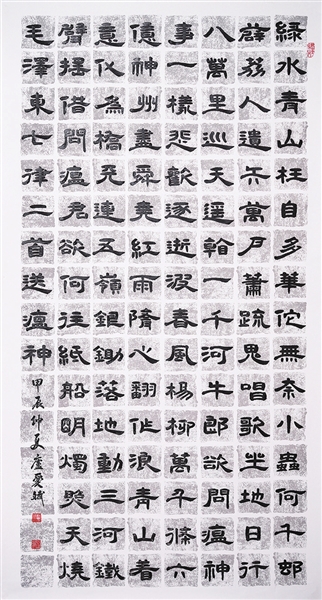 綠水青山枉自多華佗無奈小蟲何千邨
薜荔人遺矢萬戶蕭疏鬼唱歌坐地日行
八萬里巡天遙看一千河牛郎欲問瘟神
事一樣悲歡逐逝波春風楊柳萬千條六
億神州盡舜堯紅雨隨心翻作浪青山着
意化為橋天連五嶺銀鋤落地動三河鐵
臂搖借問瘟君欲何往紙船明燭照天燒
毛澤東七律二首送瘟神
甲辰仲夏盧愛